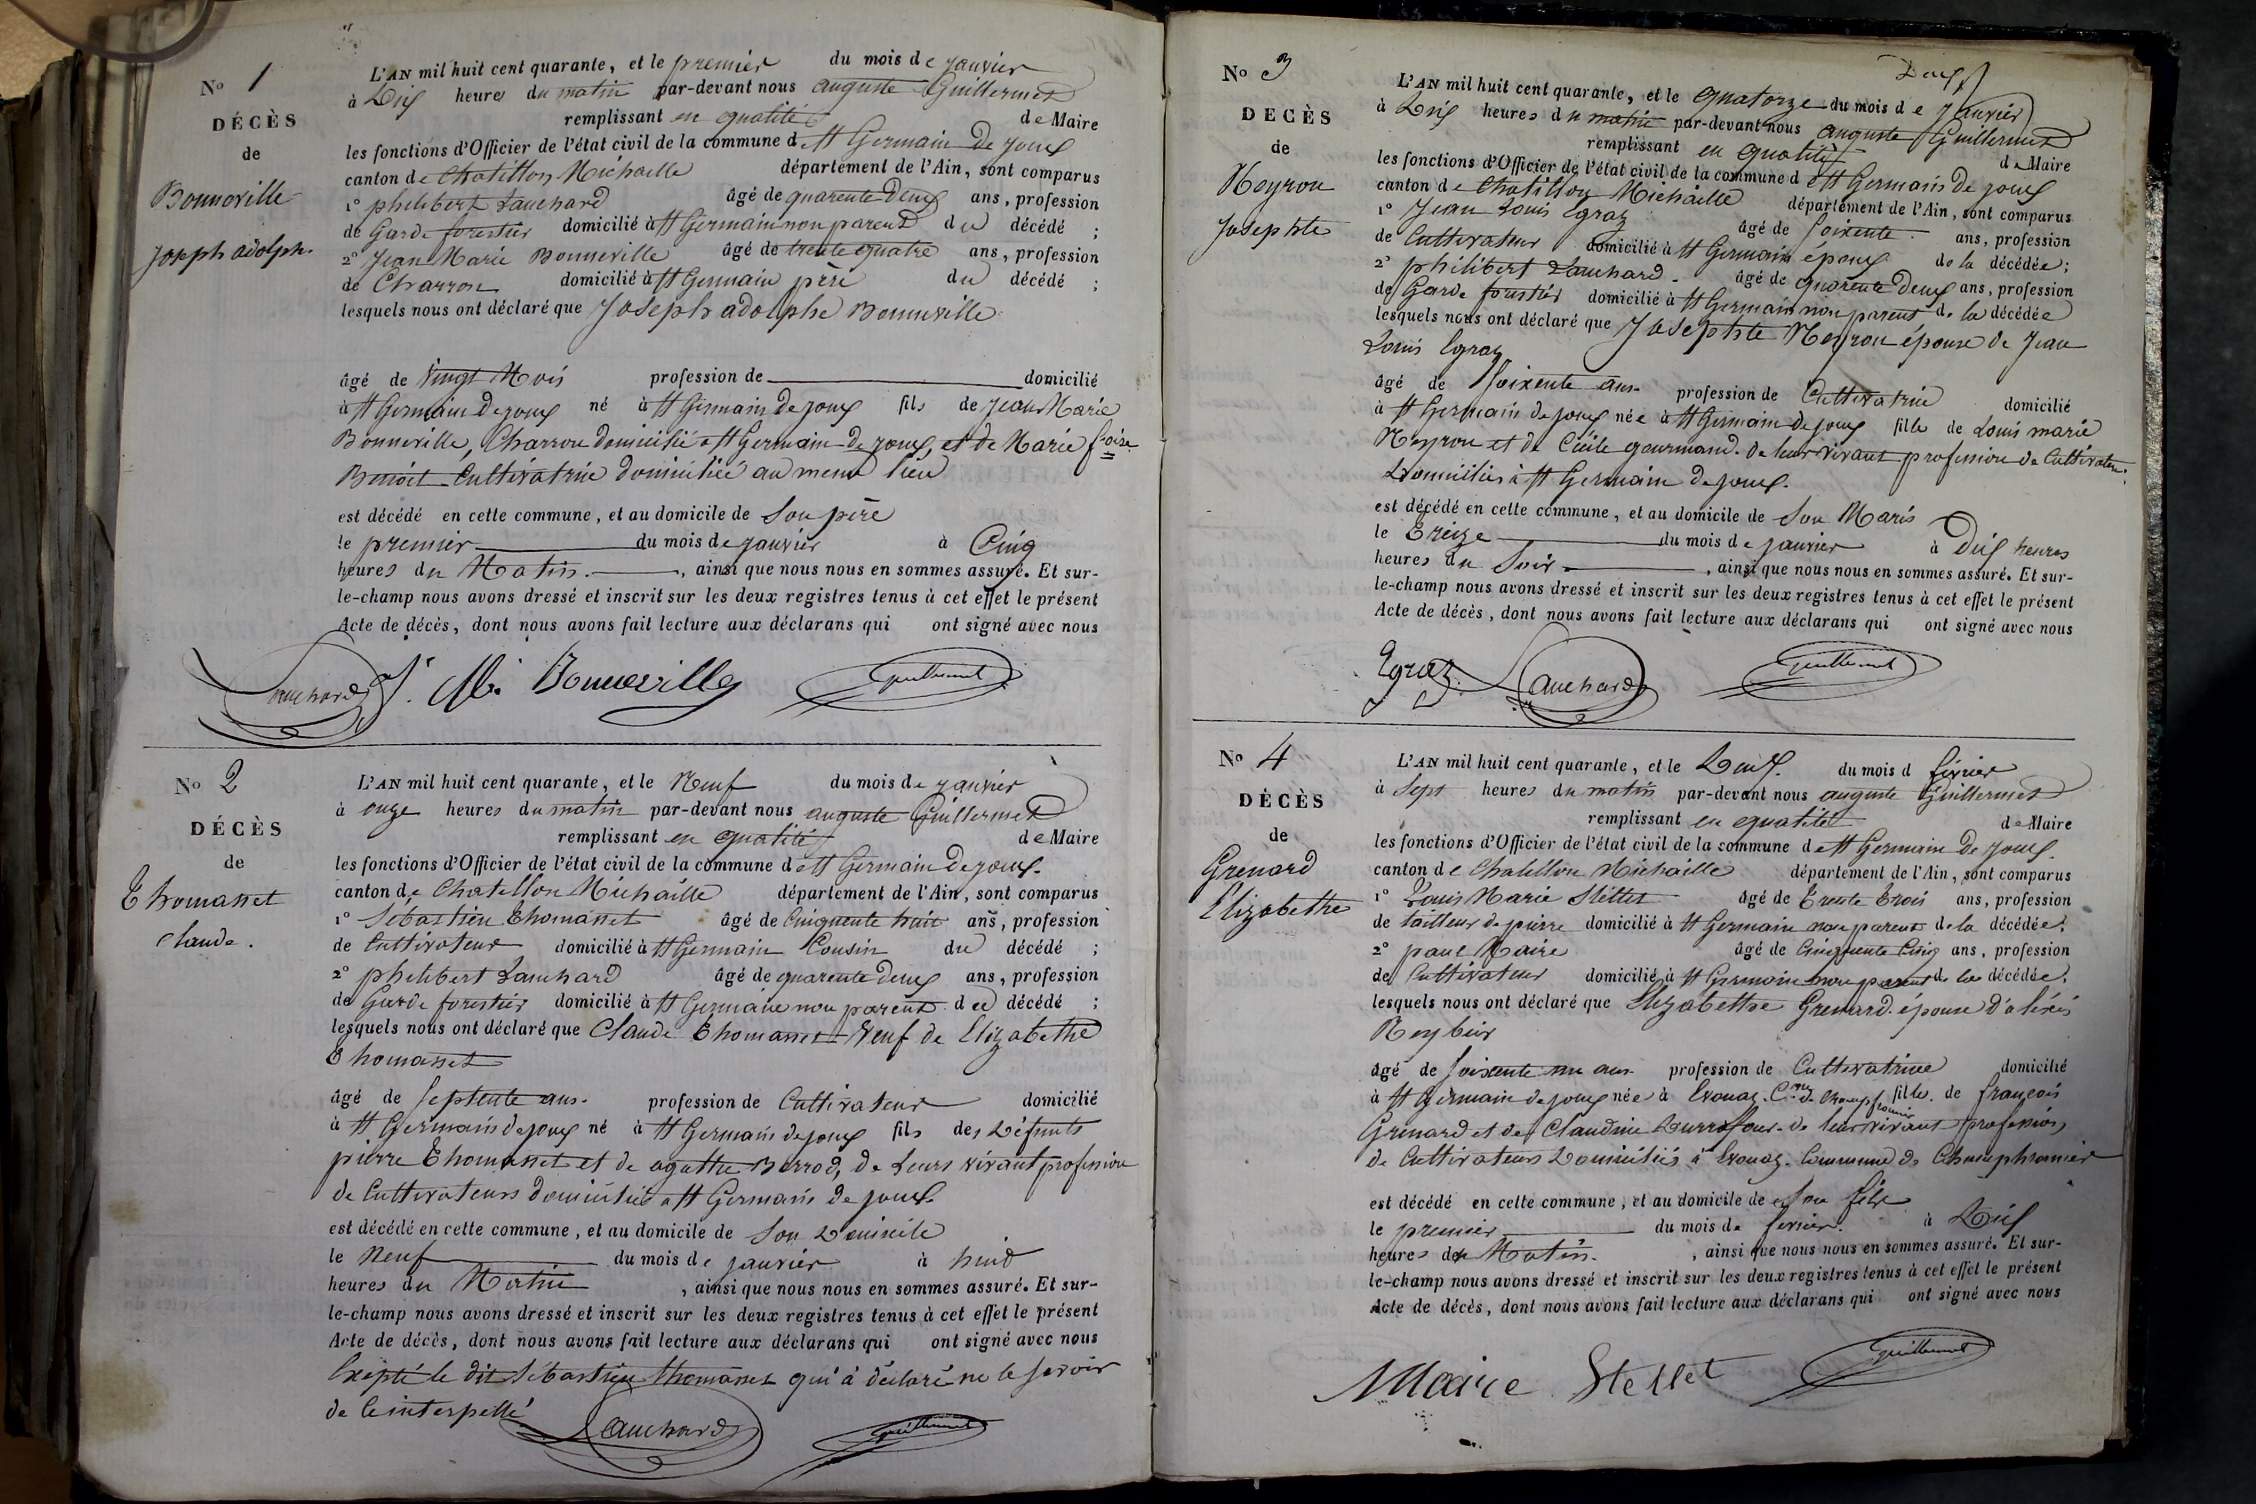 No 1
DÉCÈS
de
Bonneville
Joseph adolphe
L'AN mil huit cent quarante, et le premier du mois de janvier
à Dix heures du matin par-devant nous auguste Guillermet
remplissant en qualité de Maire
les fonctions d'Officier de l'état civil de la commune de St Germain De Joux
canton de Chatillon Michaille département de l'Ain, sont comparus
1° philibert Lauchard âgé de quarente Deux ans, profession
de Garde forestier domicilié à St Germain non parent du décédé ;
2° Jean Marie Bonneville âgé de trente quatre ans, profession
de Charron domicilié à St Germain père du décédé ;
lesquels nous ont déclaré que Joseph adolphe Bonneville
âgé de Vingt Mois profession de domicilié
à St Germain De joux né à St Germain De joux fils de Jean Marie
Bonneville, Charron domicilié a St Germain De joux, et de Marie foise
Benoit Cultivatrice domiciliée au meme lieu
est décédé en cette commune, et au domicile de Son père
le premier du mois de janvier à Cinq
heures du Matin. , ainsi que nous nous en sommes assuré. Et sur-
le-champ nous avons dressé et inscrit sur les deux registres tenus à cet effet le présent
Acte de décès, dont nous avons fait lecture aux déclarans qui ont signé avec nous
Lauchard J. M. Bonneville Guillermet
No 2
DÉCÈS
de
Thomasset
Claude.
L'AN mil huit cent quarante, et le Neuf du mois de janvier
à onze heures du matin par-devant nous auguste Guillermet
remplissant en qualité de Maire
les fonctions d'Officier de l'état civil de la commune de St Germain De joux.
canton de Chatillon Michaille département de l'Ain, sont comparus
1° Sébastien Thomasset âgé de Cinquente huit ans, profession
de Cultivateur domicilié à St Germain Cousin du décédé ;
2° philibert Lauchard âgé de quarente Deux ans, profession
de Garde forestier domicilié à St Germain non parent du décédé ;
lesquels nous ont déclaré que Claude Thomasset Veuf de Elizabethe
Thomasset
âgé de Septente ans. profession de Cultivateur domicilié
à St Germain De joux né à St Germain De joux fils des Défunts
pierre Thomasset et de agathe Borrod, De Leurs vivant profession
de Cultivateurs domiciliés a St Germain De joux.
est décédé en cette commune, et au domicile de Son Domicile
le Neuf du mois de janvier à huit
heures du Matin , ainsi que nous nous en sommes assuré. Et sur-
le-champ nous avons dressé et inscrit sur les deux registres tenus à cet effet le présent
Acte de décès, dont nous avons fait lecture aux déclarans qui ont signé avec nous
Exepté le dit Sébastien thomasset qui à déclaré ne le savoir
de ce interpellé
Lauchard Guillermet
Deux
No 3
DECÈS
de
Neyron
Josephte
L'AN mil huit cent quarante, et le quatorze du mois de Janvier
à Dix heures du matin par-devant nous auguste Guillermet
remplissant en qualité de Maire
les fonctions d'Officier de l'état civil de la commune de St Germain De joux
canton de Chatillon Michaille département de l'Ain, sont comparus
1° Jean Louis Egraz âgé de Soixente ans, profession
de Cultivateur domicilié à St Germain époux de la décédée ;
2° philibert Lauchard âgé de quarente Deux ans, profession
de Garde forestier domicilié à St Germain non parent de la décédée
lesquels nous ont déclaré que Josephte Neyron épouse de Jean
Louis Egraz
âgé de Soixente ans. profession de Cultivatrice domicilié
à St Germain De joux née à St Germain De joux fille de Louis marie
Neyron et de Cécile gourmand. de leur vivant profession de Cultivateurs
Domiciliés à St Germain De joux.
est décédé en cette commune, et au domicile de Son Maris
le Treize du mois de janvier à Dix heures
heures du Soir , ainsi que nous nous en sommes assuré. Et sur-
le-champ nous avons dressé et inscrit sur les deux registres tenus à cet effet le présent
Acte de décès, dont nous avons fait lecture aux déclarans qui ont signé avec nous
Egraz Lauchard Guillermet
No 4
DÉCÈS
de
Grenard
Elizabethe
L'AN mil huit cent quarante, et le Deux. du mois d février
à Sept heures du matin par-devant nous auguste Guillermet
remplissant en qualité de Maire
les fonctions d'Officier de l'état civil de la commune de St Germain De Joux.
canton de Chatillon Michaille département de l'Ain, sont comparus
1° Louis Marie Stellet âgé de Trente Trois ans, profession
de tailleur de pierre domicilié à St Germain non parent de la décédée ;
2° paul Maire âgé de Cinquente Cinq ans, profession
de Cultivateur domicilié à St Germain non parent de la décédée ;
lesquels nous ont déclaré que Elizabethe Grenard épouse D'aléxis
âgé de Soixente un ans profession de Cultivatrice domicilié
à St Germain de joux née à Evouaz. Cne de Champfromier fille de françois
Grenard et de Claudine de leur vivant profession
de Cultivateurs Domiciliés à Evouaz. Commune de Champfromier
est décédé en cette commune, et au domicile de Son
le premier du mois de fevrier. à Dix
heures du Matin. , ainsi que nous nous en sommes assuré. Et sur-
le-champ nous avons dressé et inscrit sur les deux registres tenus à cet effet le présent
Acte de décès, dont nous avons fait lecture aux déclarans qui ont signé avec nous
Maire Stellet Guillermet